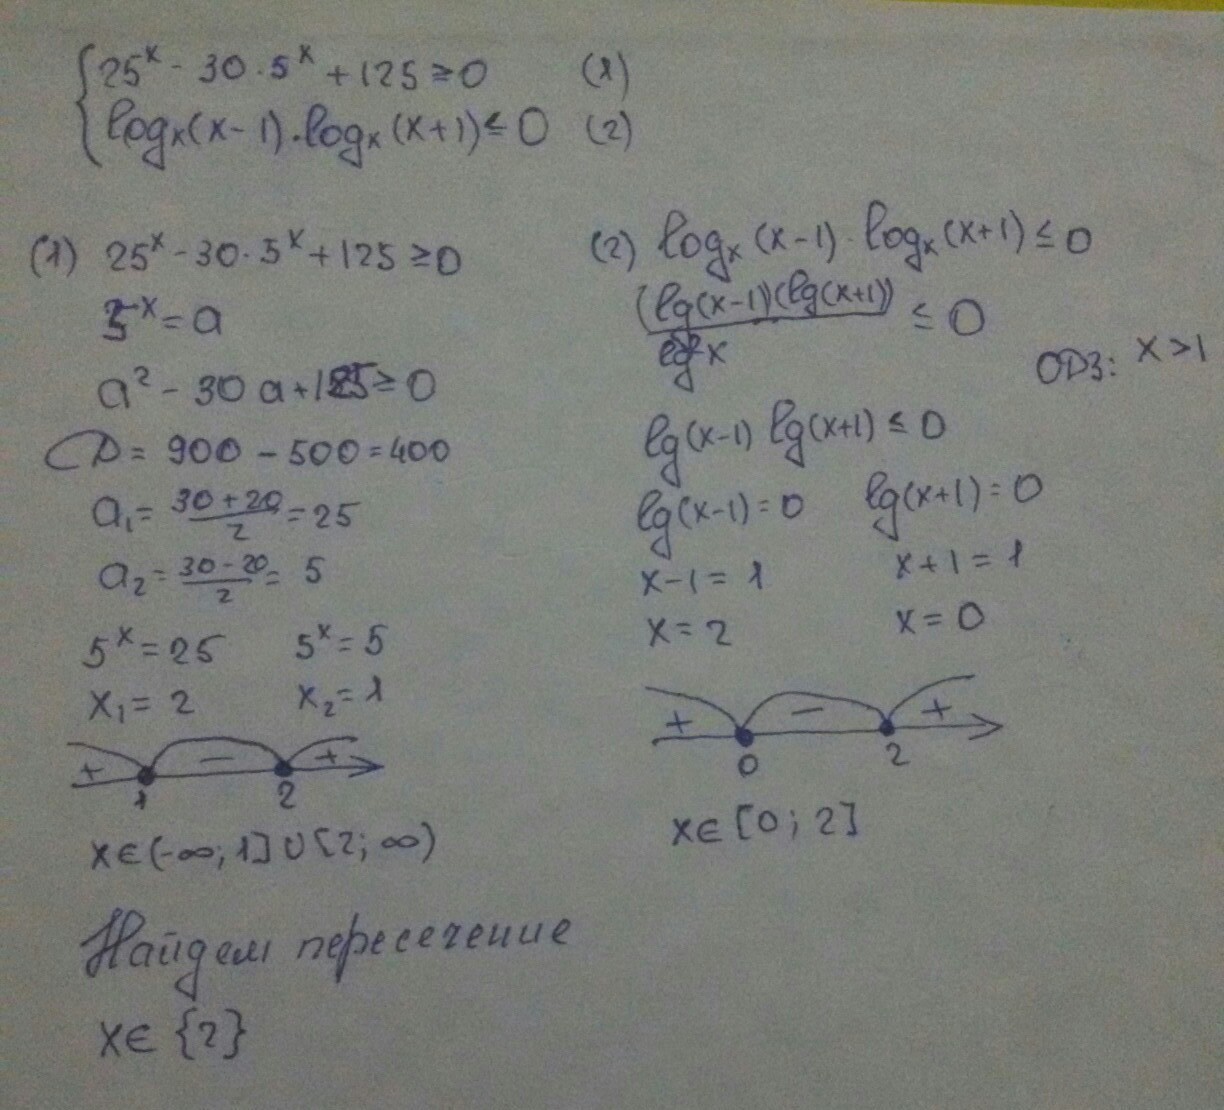 { 25ˣ - 30 · 5ˣ + 125 ≥ 0 (1)
logₓ(x-1) · logₓ(x+1) ≤ 0 (2)
(1) 25ˣ - 30 · 5ˣ + 125 ≥ 0
5ˣ = a
a² - 30a + 125 ≥ 0
D = 900 - 500 = 400
a₁ = (30 + 20)/2 = 25
a₂ = (30 - 20)/2 = 5
5ˣ = 25 5ˣ = 5
x₁ = 2 x₂ = 1
+ - +
1 2
x ∈ (-∞; 1] ∪ [2; ∞)
(2) logₓ(x-1) · logₓ(x+1) ≤ 0
(lg(x-1)(lg(x+1))/lg²x ≤ 0
ОДЗ: x > 1
lg(x-1) lg(x+1) ≤ 0
lg(x-1) = 0 lg(x+1) = 0
x-1 = 1 x+1 = 1
x = 2 x = 0
+ - +
0 2
x ∈ [0; 2]
Найдем пересечение
x ∈ {2}